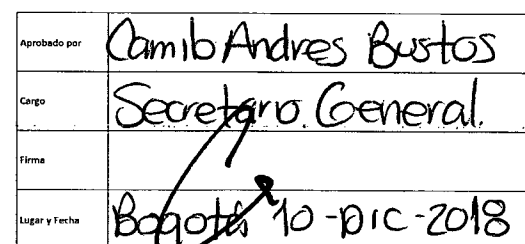 Aprobado por Camilo Andres Bustos
Cargo Secretario General.
Firma
Lugar y Fecha Bogotá 10-DIC-2018